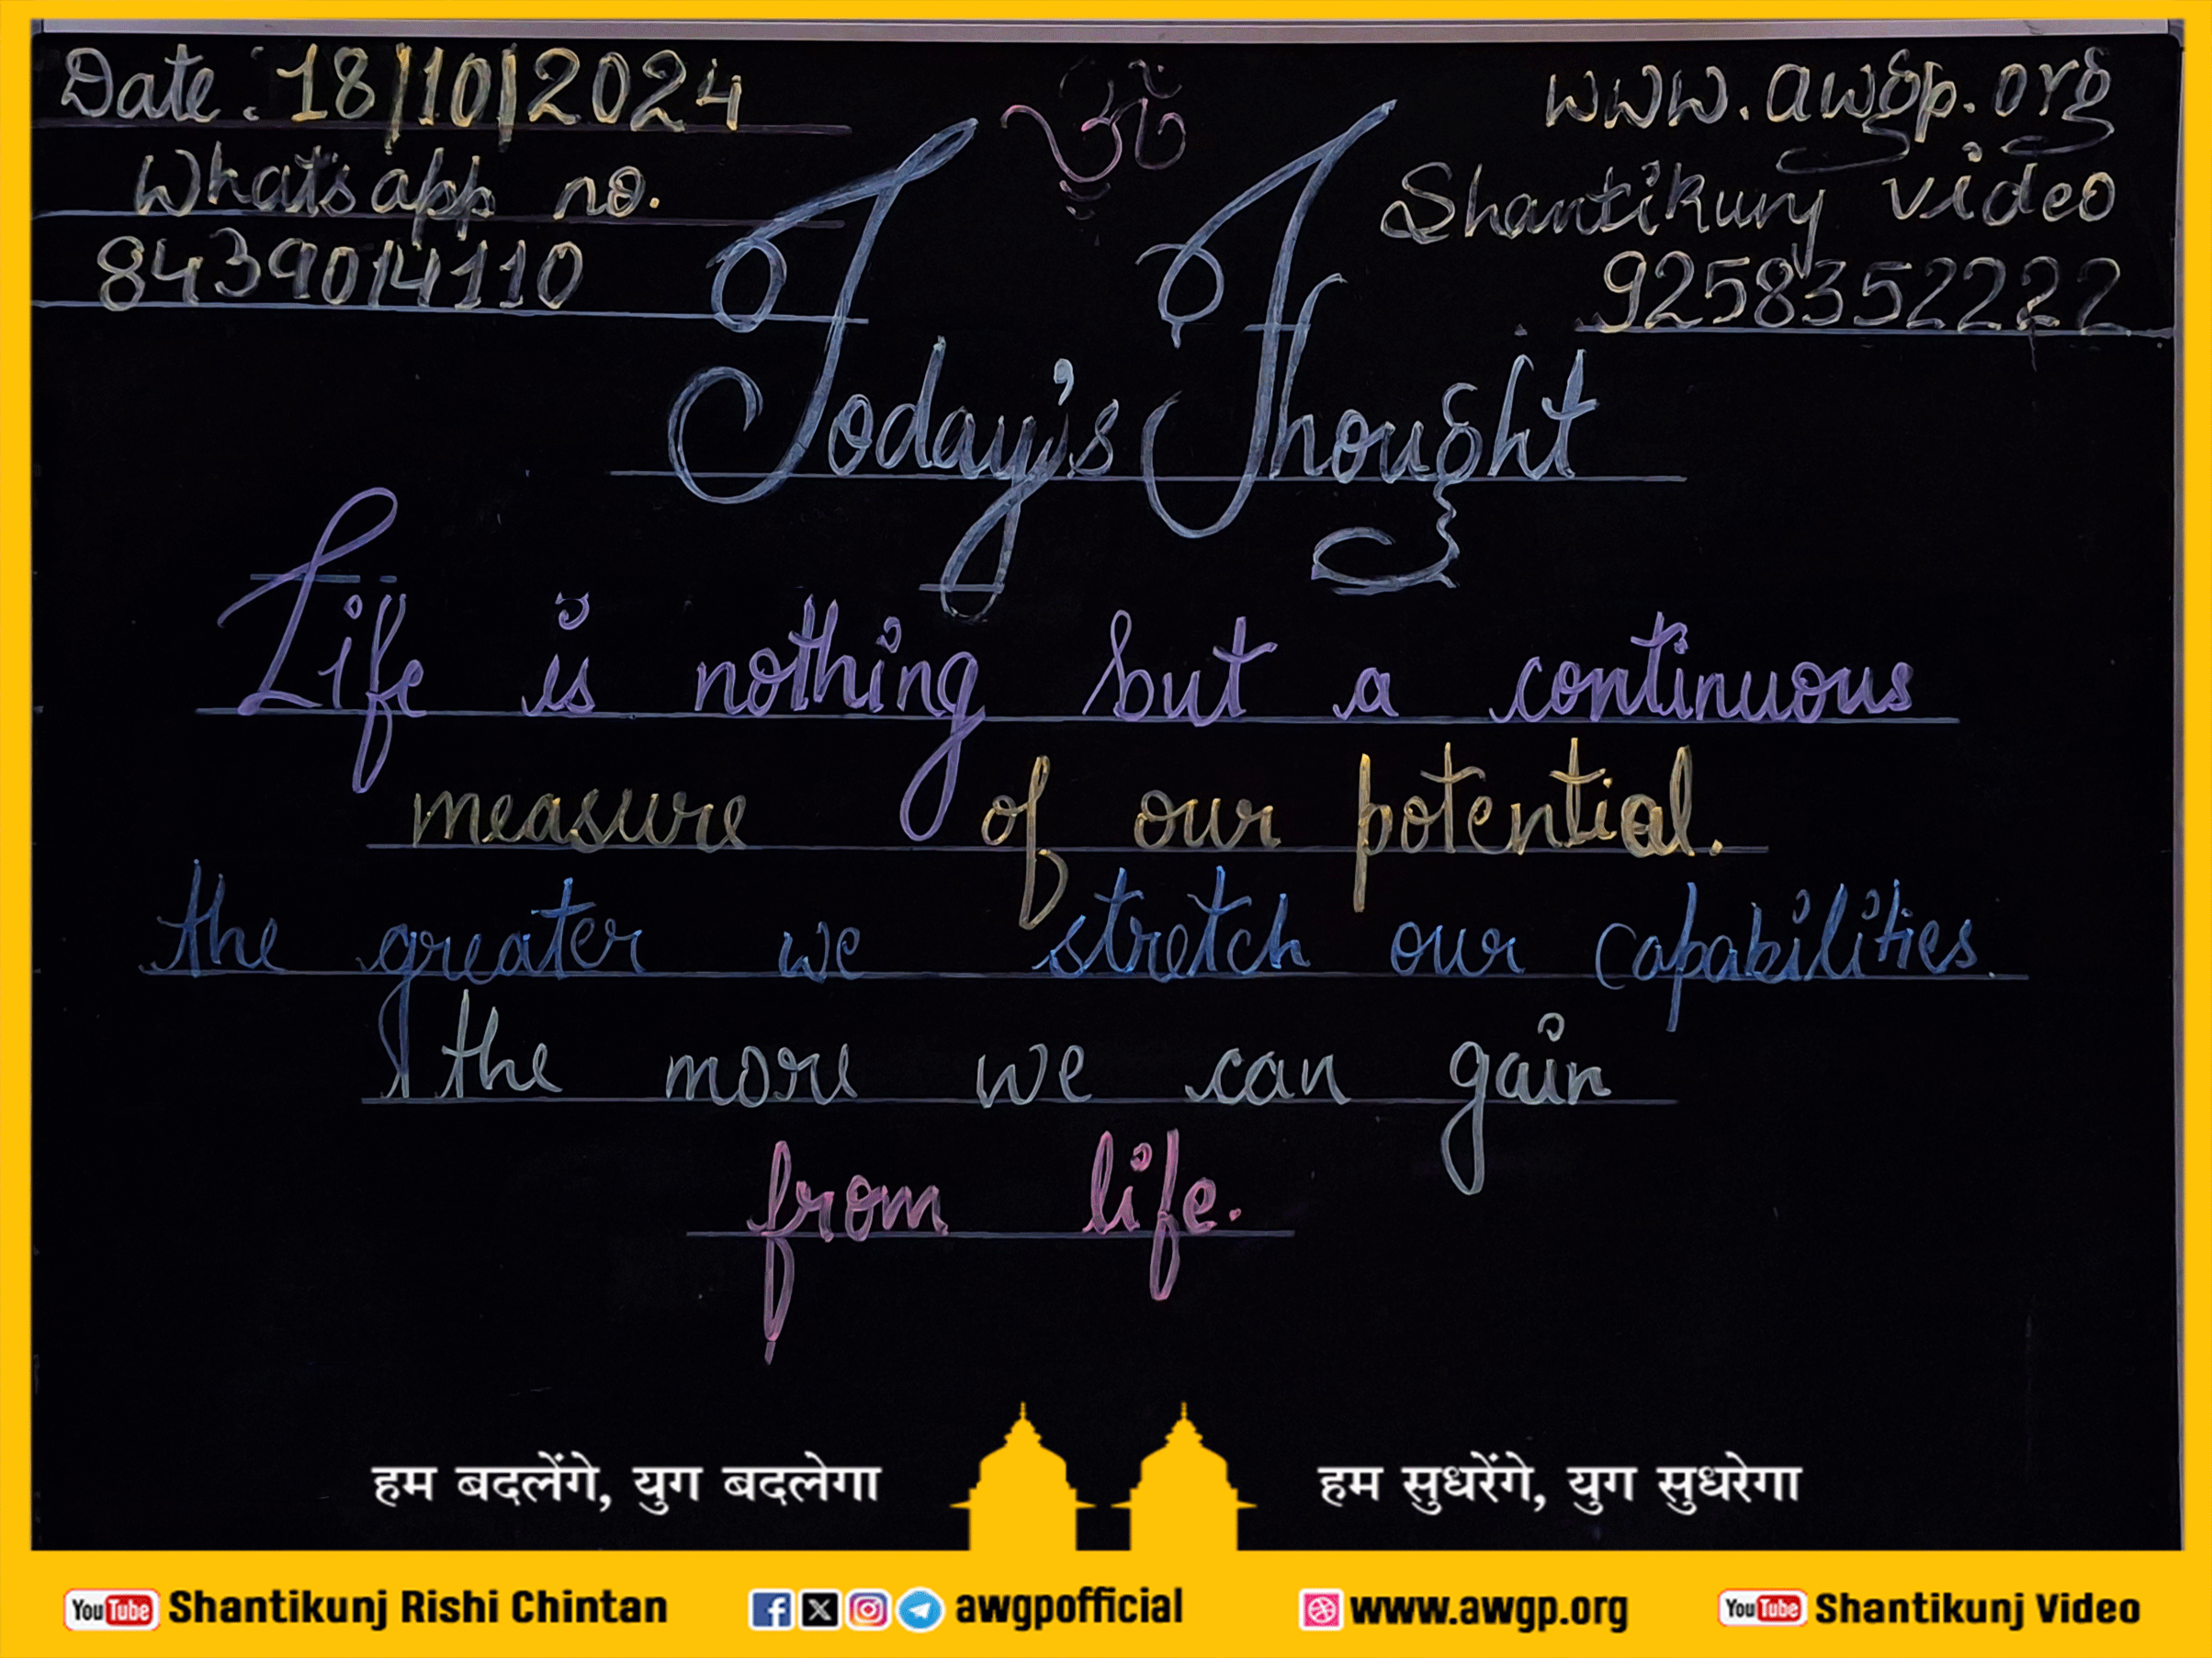 Date: 18/10/2024
ॐ
www.awgp.org
Whatsapp no.
8439014110
Shantikunj video
9258352222
Today's Thought
Life is nothing but a continuous
measure of our potential.
the greater we stretch our capabilities
the more we can gain
from life.
हम बदलेंगे, युग बदलेगा
हम सुधरेंगे, युग सुधरेगा
YouTube Shantikunj Rishi Chintan
awgpofficial
www.awgp.org
YouTube Shantikunj Video